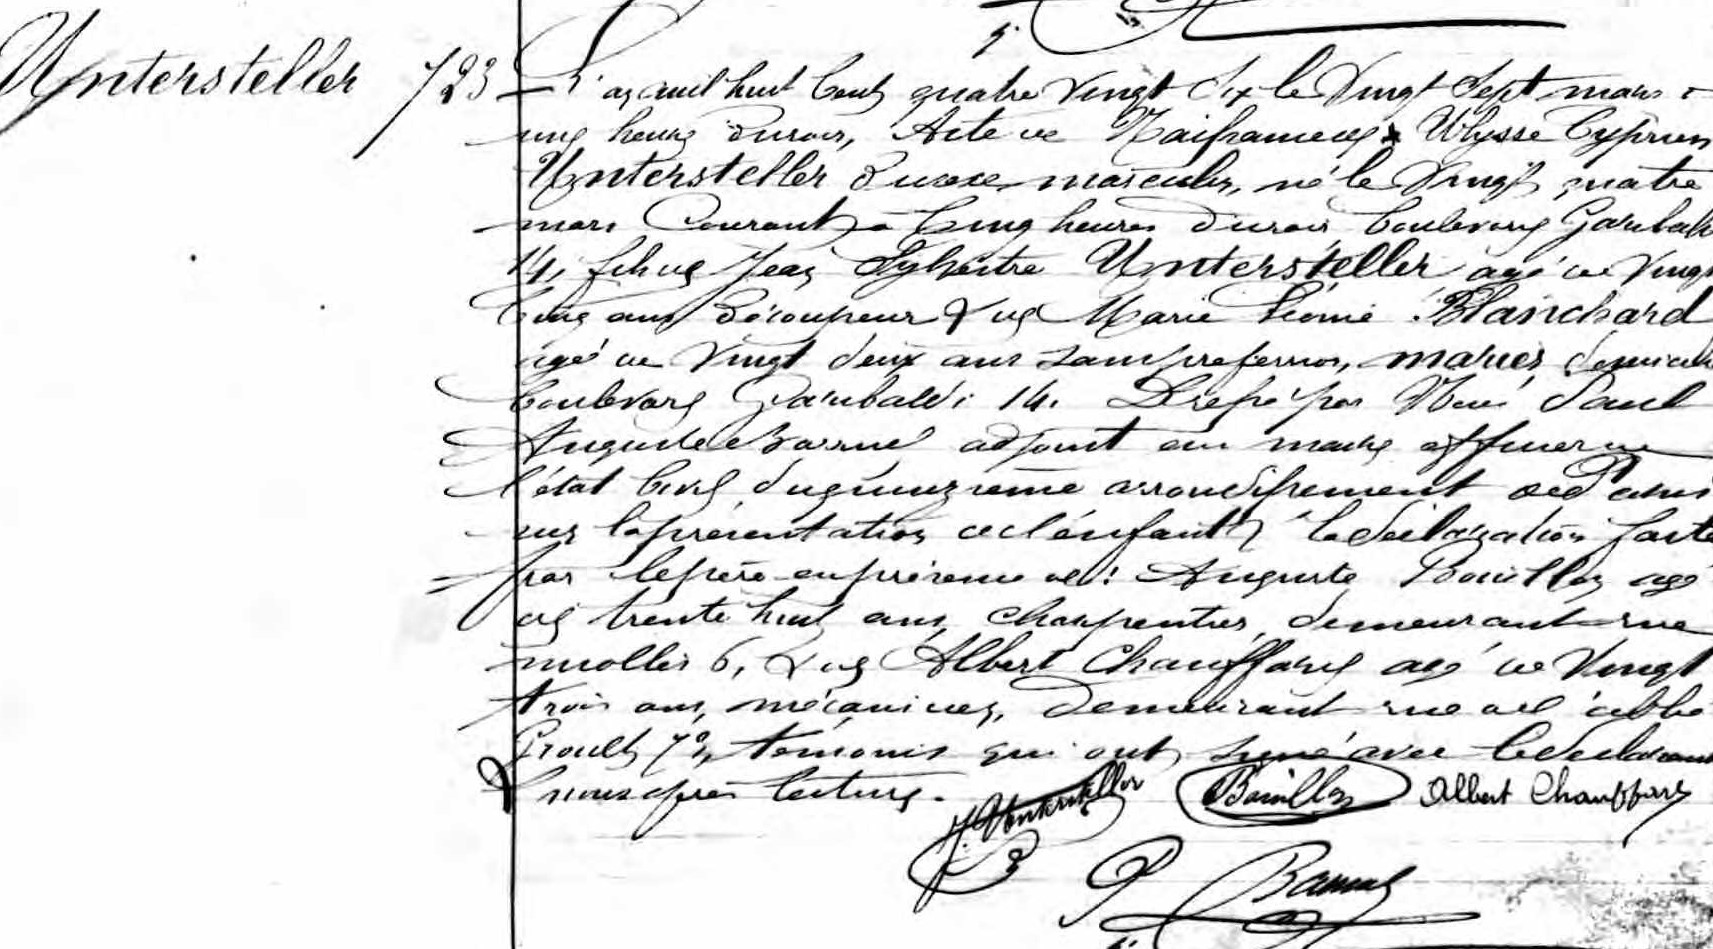 Untersteller 723
L'an mil huit cent quatre vingt dix le vingt sept mars à
une heure du soir, Acte de Naissance de Ulysse Cyprien
Untersteller du sexe masculin, né le vingt quatre
mars courant à cinq heures du soir boulevard Garibaldi
14, fils de Jean Sylvestre Untersteller agé de vingt
cinq ans découpeur & de Marie Léonie Blanchard
agé de vingt deux ans sans profession, mariés domiciliés
boulevard Garibaldi 14. Dressé par Nous Paul
Auguste adjoint au maire officier de
l'état civil du quinzième arrondissement de Paris
sur la présentation de l'enfant & la déclaration faite
par le père en présence de: Auguste Bouillon agé
de trente huit ans, charpentier, demeurant rue
6, & de Albert Chauffard agé de vingt
trois ans, mécanicien, demeurant rue de l'abbé
Groult 79, témoins qui ont signé avec le déclarant
& nous après lecture.
J. Untersteller Bouillon Albert Chauffard